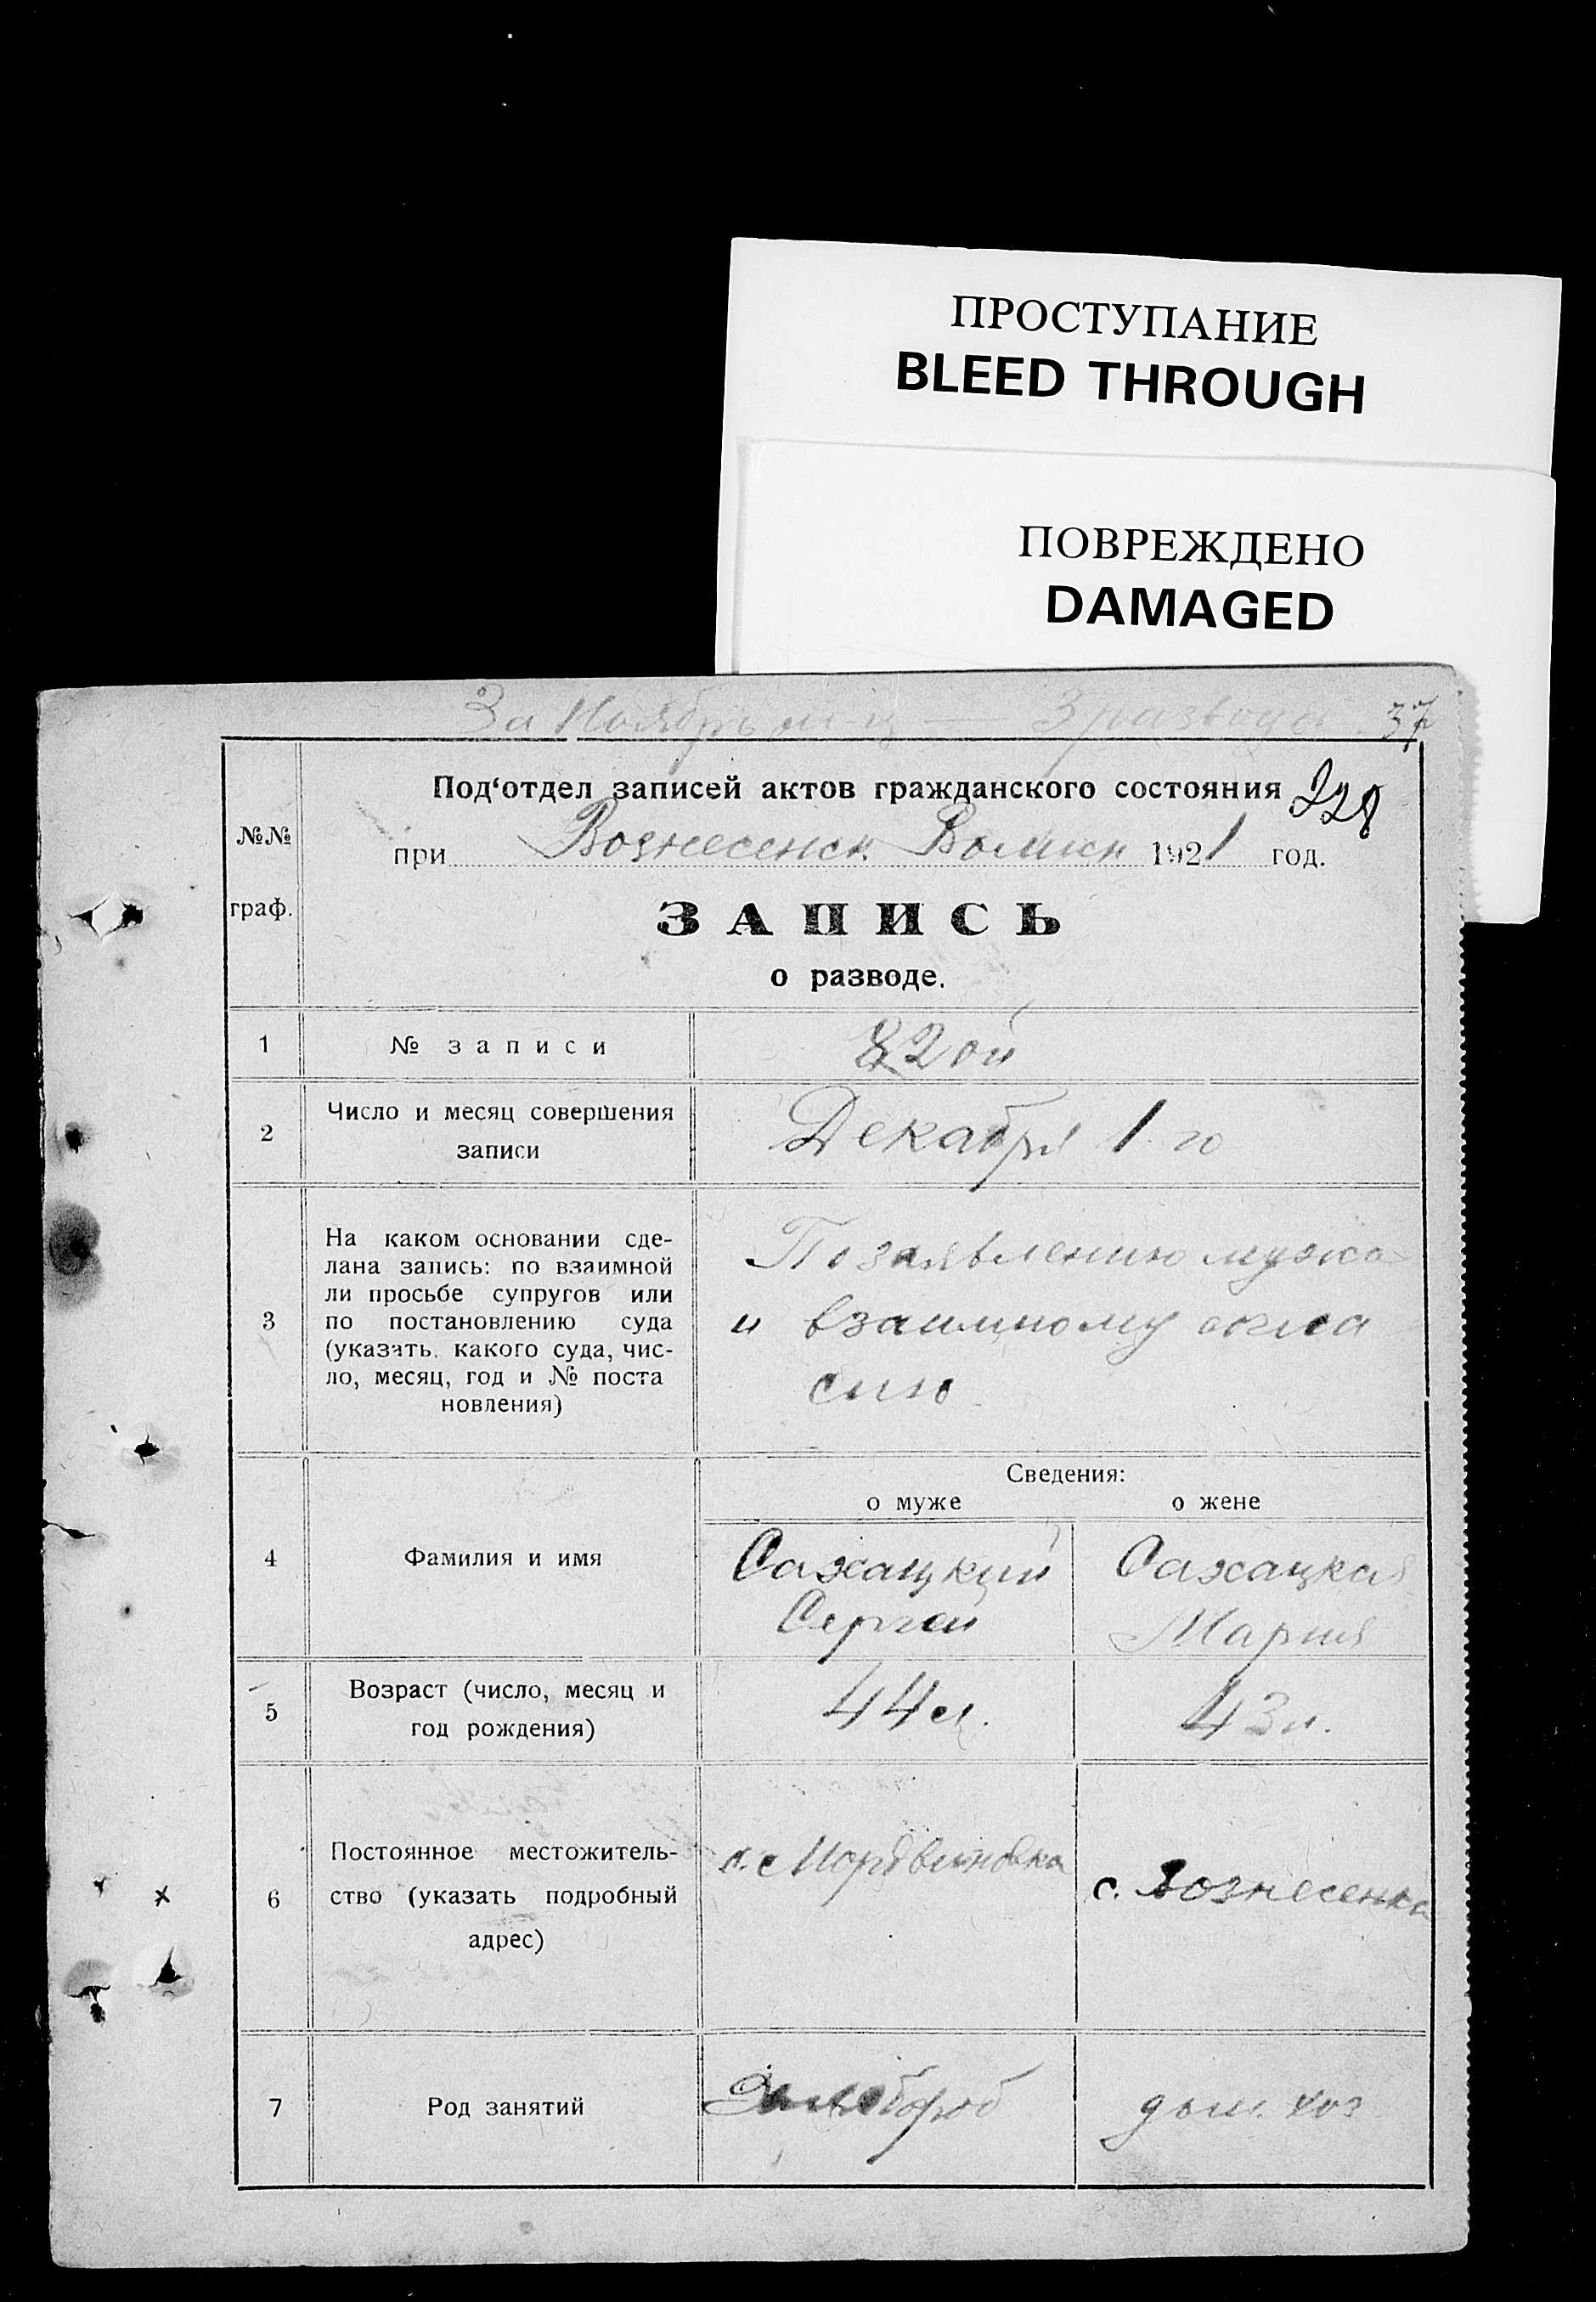 ПРОСТУПАНИЕ
BLEED THROUGH
ПОВРЕЖДЕНО
DAMAGED
За Ноябрь м-ц — 3 развода 37
Под‘отдел записей актов гражданского состояния 228
при Вознесенск. Волисп 1921 год.
№№
граф.
ЗАПИСЬ
о разводе.
1 № записи 2ой
2 Число и месяц совершения
записи
Декабря 1 го
3 На каком основании сде-
лана запись: по взаимной
ли просьбе супругов или
по постановлению суда
(указать. какого суда, чис-
ло, месяц, год и № поста
новления)
По заявлению мужа
и взаимному согла
сию
Сведения:
о муже о жене
4 Фамилия и имя
Сахацкий Сахацкая
Сергей Мария
5 Возраст (число, месяц и
год рождения)
44 л. 43 л.
6 Постоянное местожитель-
ство (указать подробный
адрес)
с. Мордвиновка с. Вознесенка
7 Род занятий хлебороб дом. хоз